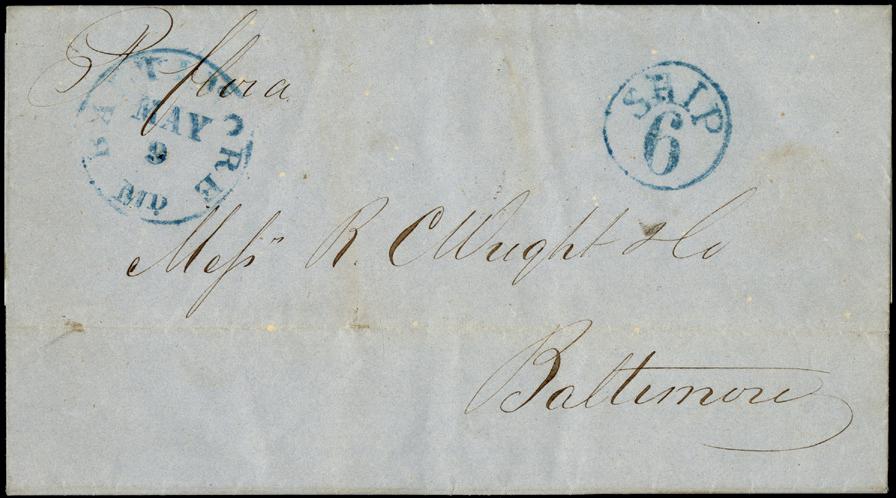 P. flora
BALTIMORE
MAY
9
Md.
SHIP
6
Messrs R. C Wright & Co
Baltimore